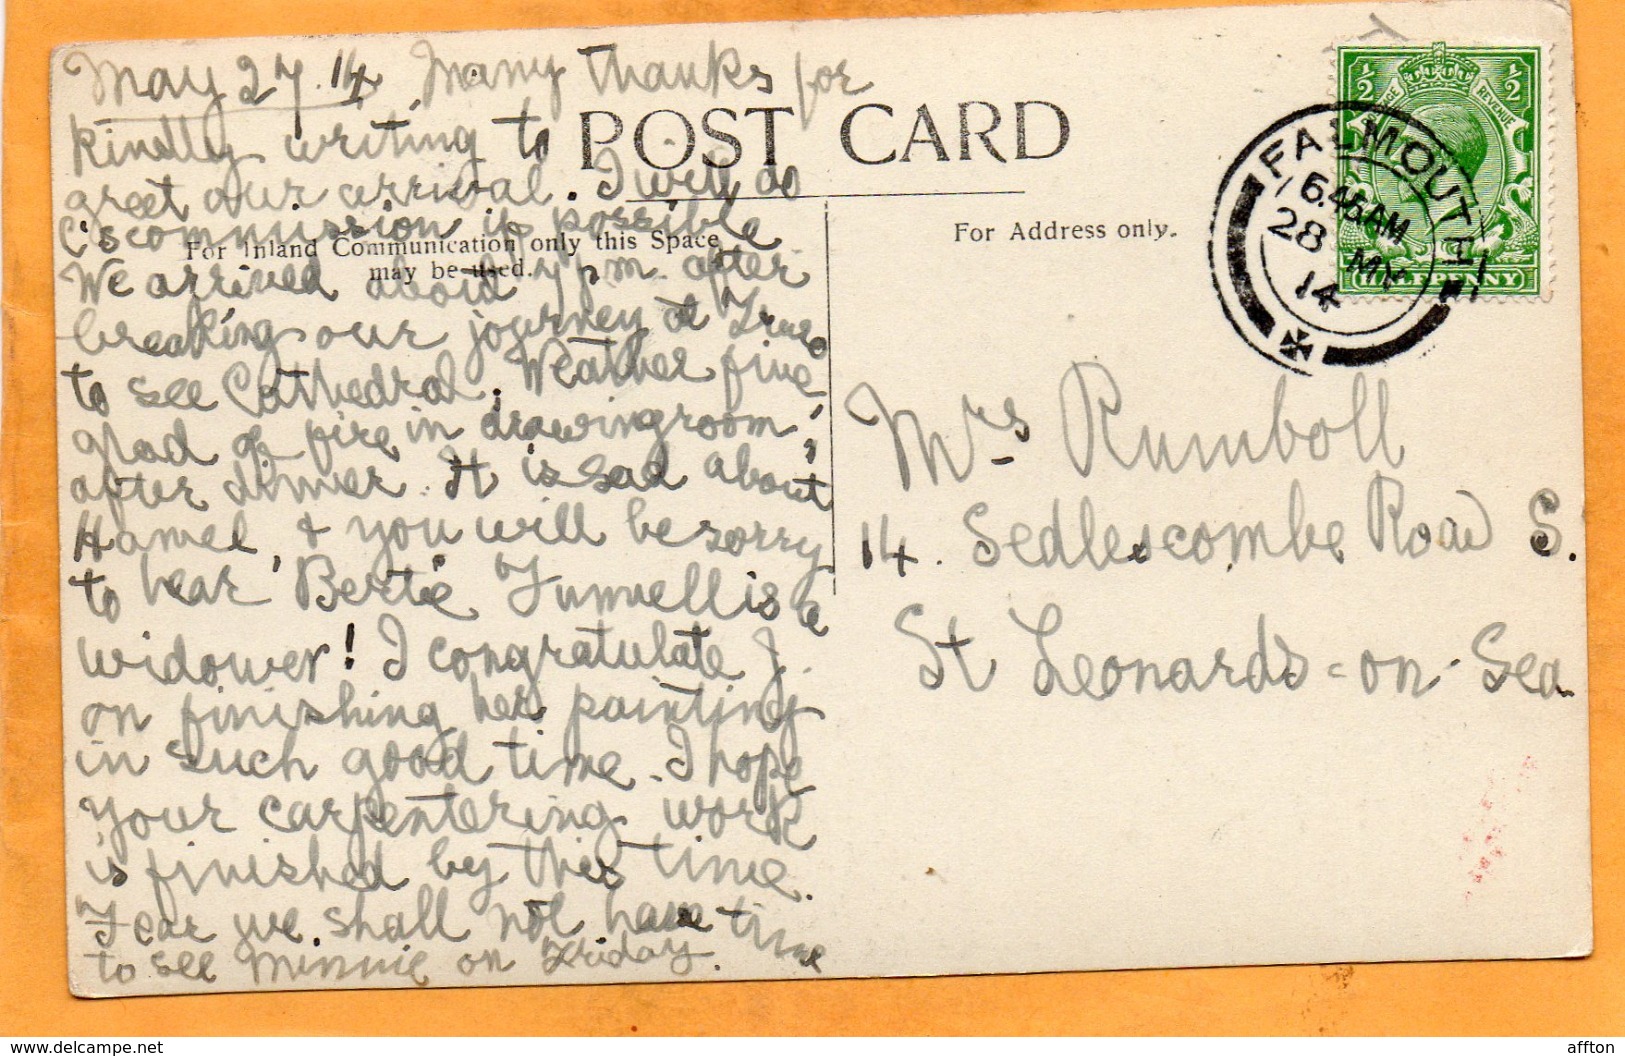 May 27. 14 Many thanks for
kindly writing to
greet our arrival. I will do
C's commission if possible
We arrived about 7 p.m. after
breaking our journey at Truro
to see Cathedral. Weather fine,
glad of fire in drawingroom,
after dinner. It is sad about
Hamel, & you will be sorry
to hear Bertie Funnell is a
widower! I congratulate J.
on finishing her painting
in such good time. I hope
your carpentering work
is finished by this time.
Fear we shall not have time
to see Minnie on Friday.
POST CARD
For Inland Communication only this Space
may be used.
For Address only.
FALMOUTH
6.45 AM
28 MY
14
½ ½
REVENUE
HALFPENNY
Mrs Rumboll
14. Sedlescombe Road S.
St Leonards-on-Sea
affton
www.delcampe.net